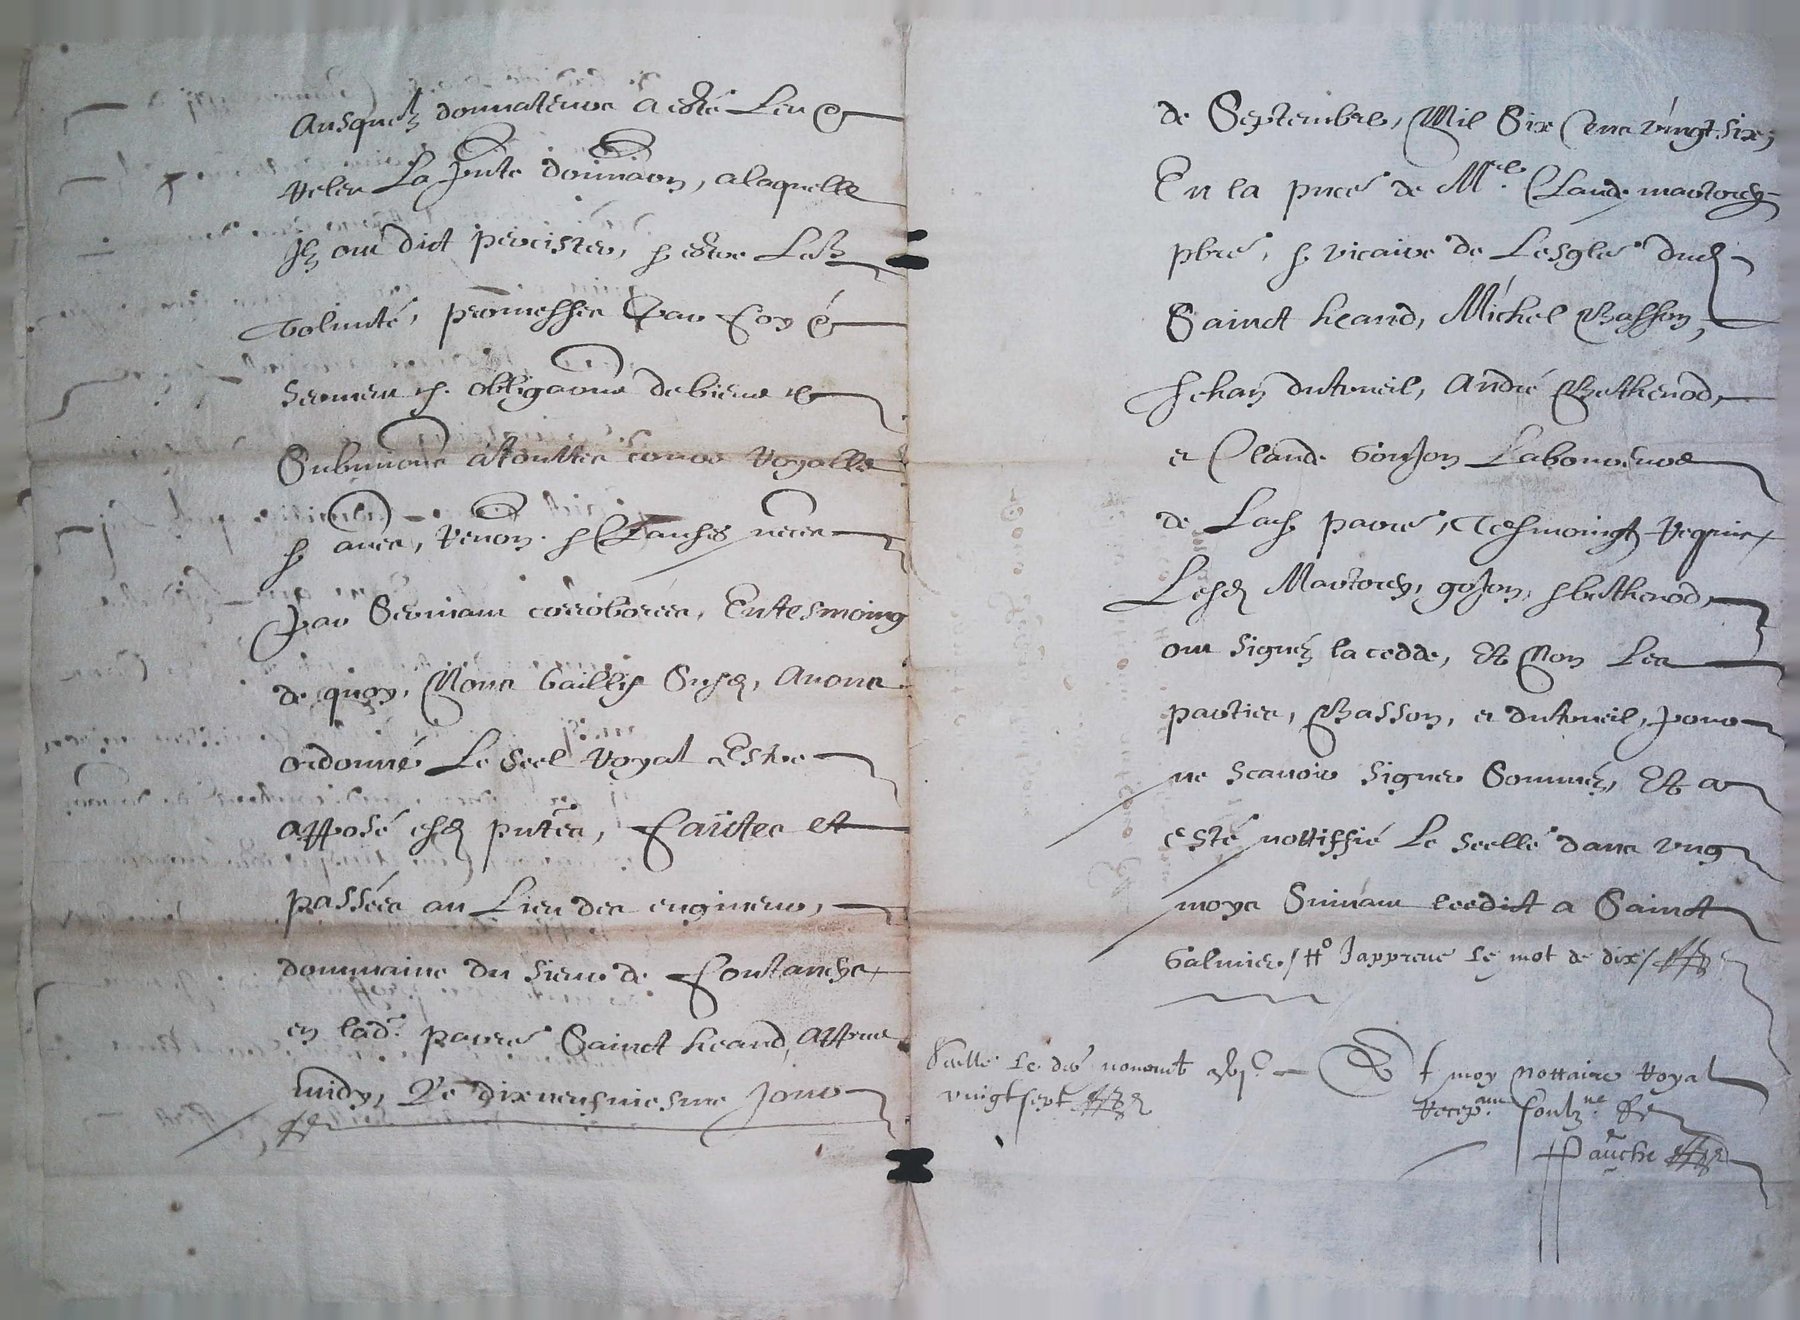 Ausquelz donnateurs a esté Leu &
releu La pnte donnaon, a laquelle
Ilz ont dict percister, & estre Leur
Volunté, promesses par foy &
serment & obligaons de biens &
Submions a touttes cours royalles
& aues, renon. & Clauses neces
par Serment corroborées, En tesmoing
de quoy, Nous bailly Susd, Avons
ordonné Le Seel royal Estre
apposé esd pntes, faictes et
passées au Lieu des
dommaine du sieur de Foutanes
en lad. parre Sainct heand, appres
midy, Le dixneufviesme Jour
de Septembre, Mil Six Cens vingt six,
En la pnce de Mre Claude
pbre, & vicaire de Lesglé dud
Sainct heand, Michel Basson,
Jehan dutreuil, André Bethenod,
et Claude Goujon Laboureurs
de Lad parre, Tesmoingt requis
Lesd gojon, & bethenod,
ont signéz la cedde, Et Non Les
parties, Basson, et dutreuil, pour
ne scavoir signer Comméz, Et a
esté nottiffié Le scellé dans ung
moys Suivant leedict a Sainct
Galmier / Japreuve le mot de dix /
Seellé le dix novembre
vingt sept
Et moy Nottaire royal
recepvant soubzne
Pauche